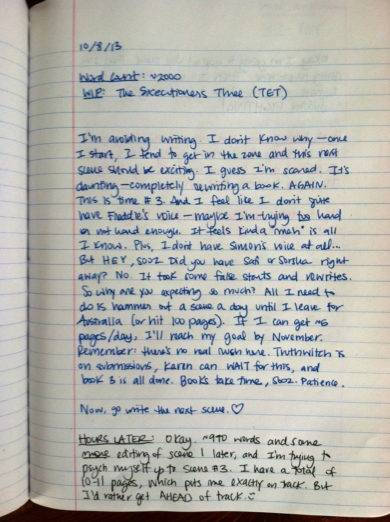 10/8/13
Word Count: ~2000
WIP: The Executioners Three (TET)
I'm avoiding writing. I don't know why—once
I start, I tend to get in the zone and this next
scene should be exciting. I guess I'm scared. It's
daunting—completely rewriting a book. AGAIN.
This is time #3. And I feel like I don't quite
have Freddie's voice—maybe I'm trying too hard
or not hard enough. It feels kinda "meh" is all
I know. Plus, I don't have Simon's voice at all...
But HEY, SOOZ. Did you have Safi or Sorsha right
away? No. It took some false starts and rewrites.
So why are you expecting so much? All I need to
do is hammer out a scene a day until I leave for
Australia (or hit 100 pages). If I can get ~5
pages/day, I'll reach my goal by November.
Remember: there's no real rush here. Truthwitch is
on submissions, Karen can WAIT for this, and
book 3 is all done. Books take time, Sooz. Patience.
Now, go write the next scene. ♡
HOURS LATER: Okay. ~970 words and some
more editing of scene 1 later, and I'm trying to
psych myself up to scene #3. I have a total of
10-11 pages, which puts me exactly on track. But
I'd rather get AHEAD of track. :)